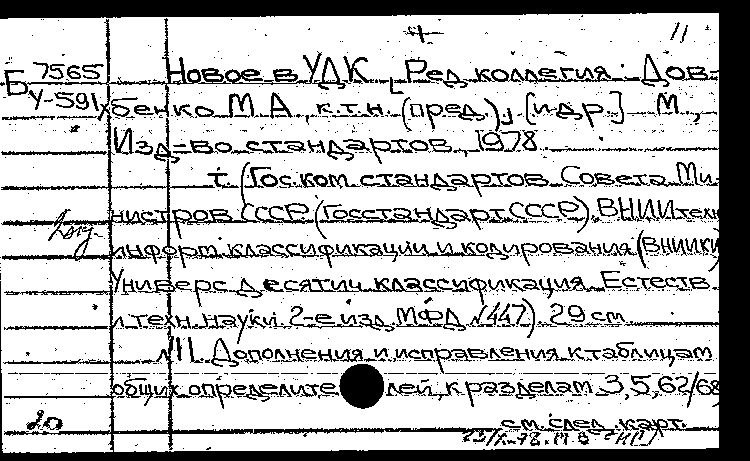 11
Б 7565 Новое в УДК [Ред. коллегия: Дов-
У-591 бенко М.А., к.т.н. (пред.)] [и др.] М.,
Изд-во стандартов, 1978.
т. (Гос. ком. стандартов Совета Ми-
нистров СССР (Госстандарт СССР). ВНИИ техн.
информ., классификации и кодирования (ВНИИКИ)
Универс. десятич. классификация. Естеств.
и техн. науки. 2-е изд. МФД №447). 29 см.
Дополнения и исправления к таблицам
общих определителей, к разделам 3,5,62/68
20 см. след. карт.